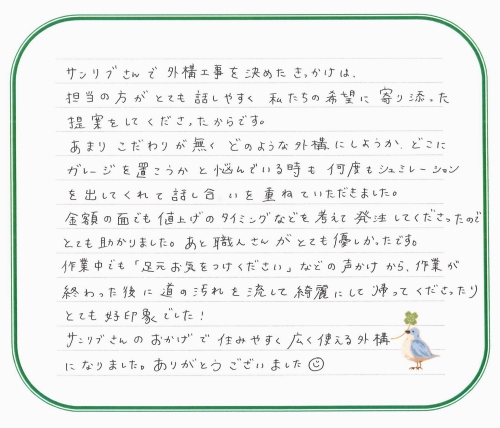 サンリブさんで外構工事を決めたきっかけは、
担当の方がとても話しやすく私たちの希望に寄り添った
提案をしてくださったからです。
あまりこだわりが無くどのような外構にしようか、どこに
ガレージを置こうかと悩んでいる時も何度もシュミレーション
を出してくれて話し合いを重ねていただきました。
金額の面でも値上げのタイミングなどを考えて発注してくださったので
とても助かりました。あと職人さんがとても優しかったです。
作業中でも「足元お気をつけください」などの声かけから、作業が
終わった後に道の汚れを流して綺麗にして帰ってくださったり
とても好印象でした!
サンリブさんのおかげで住みやすく広く使える外構
になりました。ありがとうございました☺